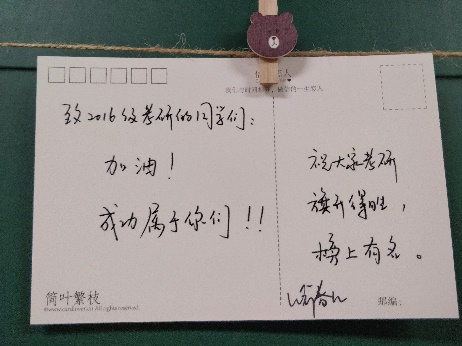 致2016级考研的同学们：
加油！
成功属于你们！！
祝大家考研
旗开得胜，
榜上有名。
简叶繁枝
邮编：